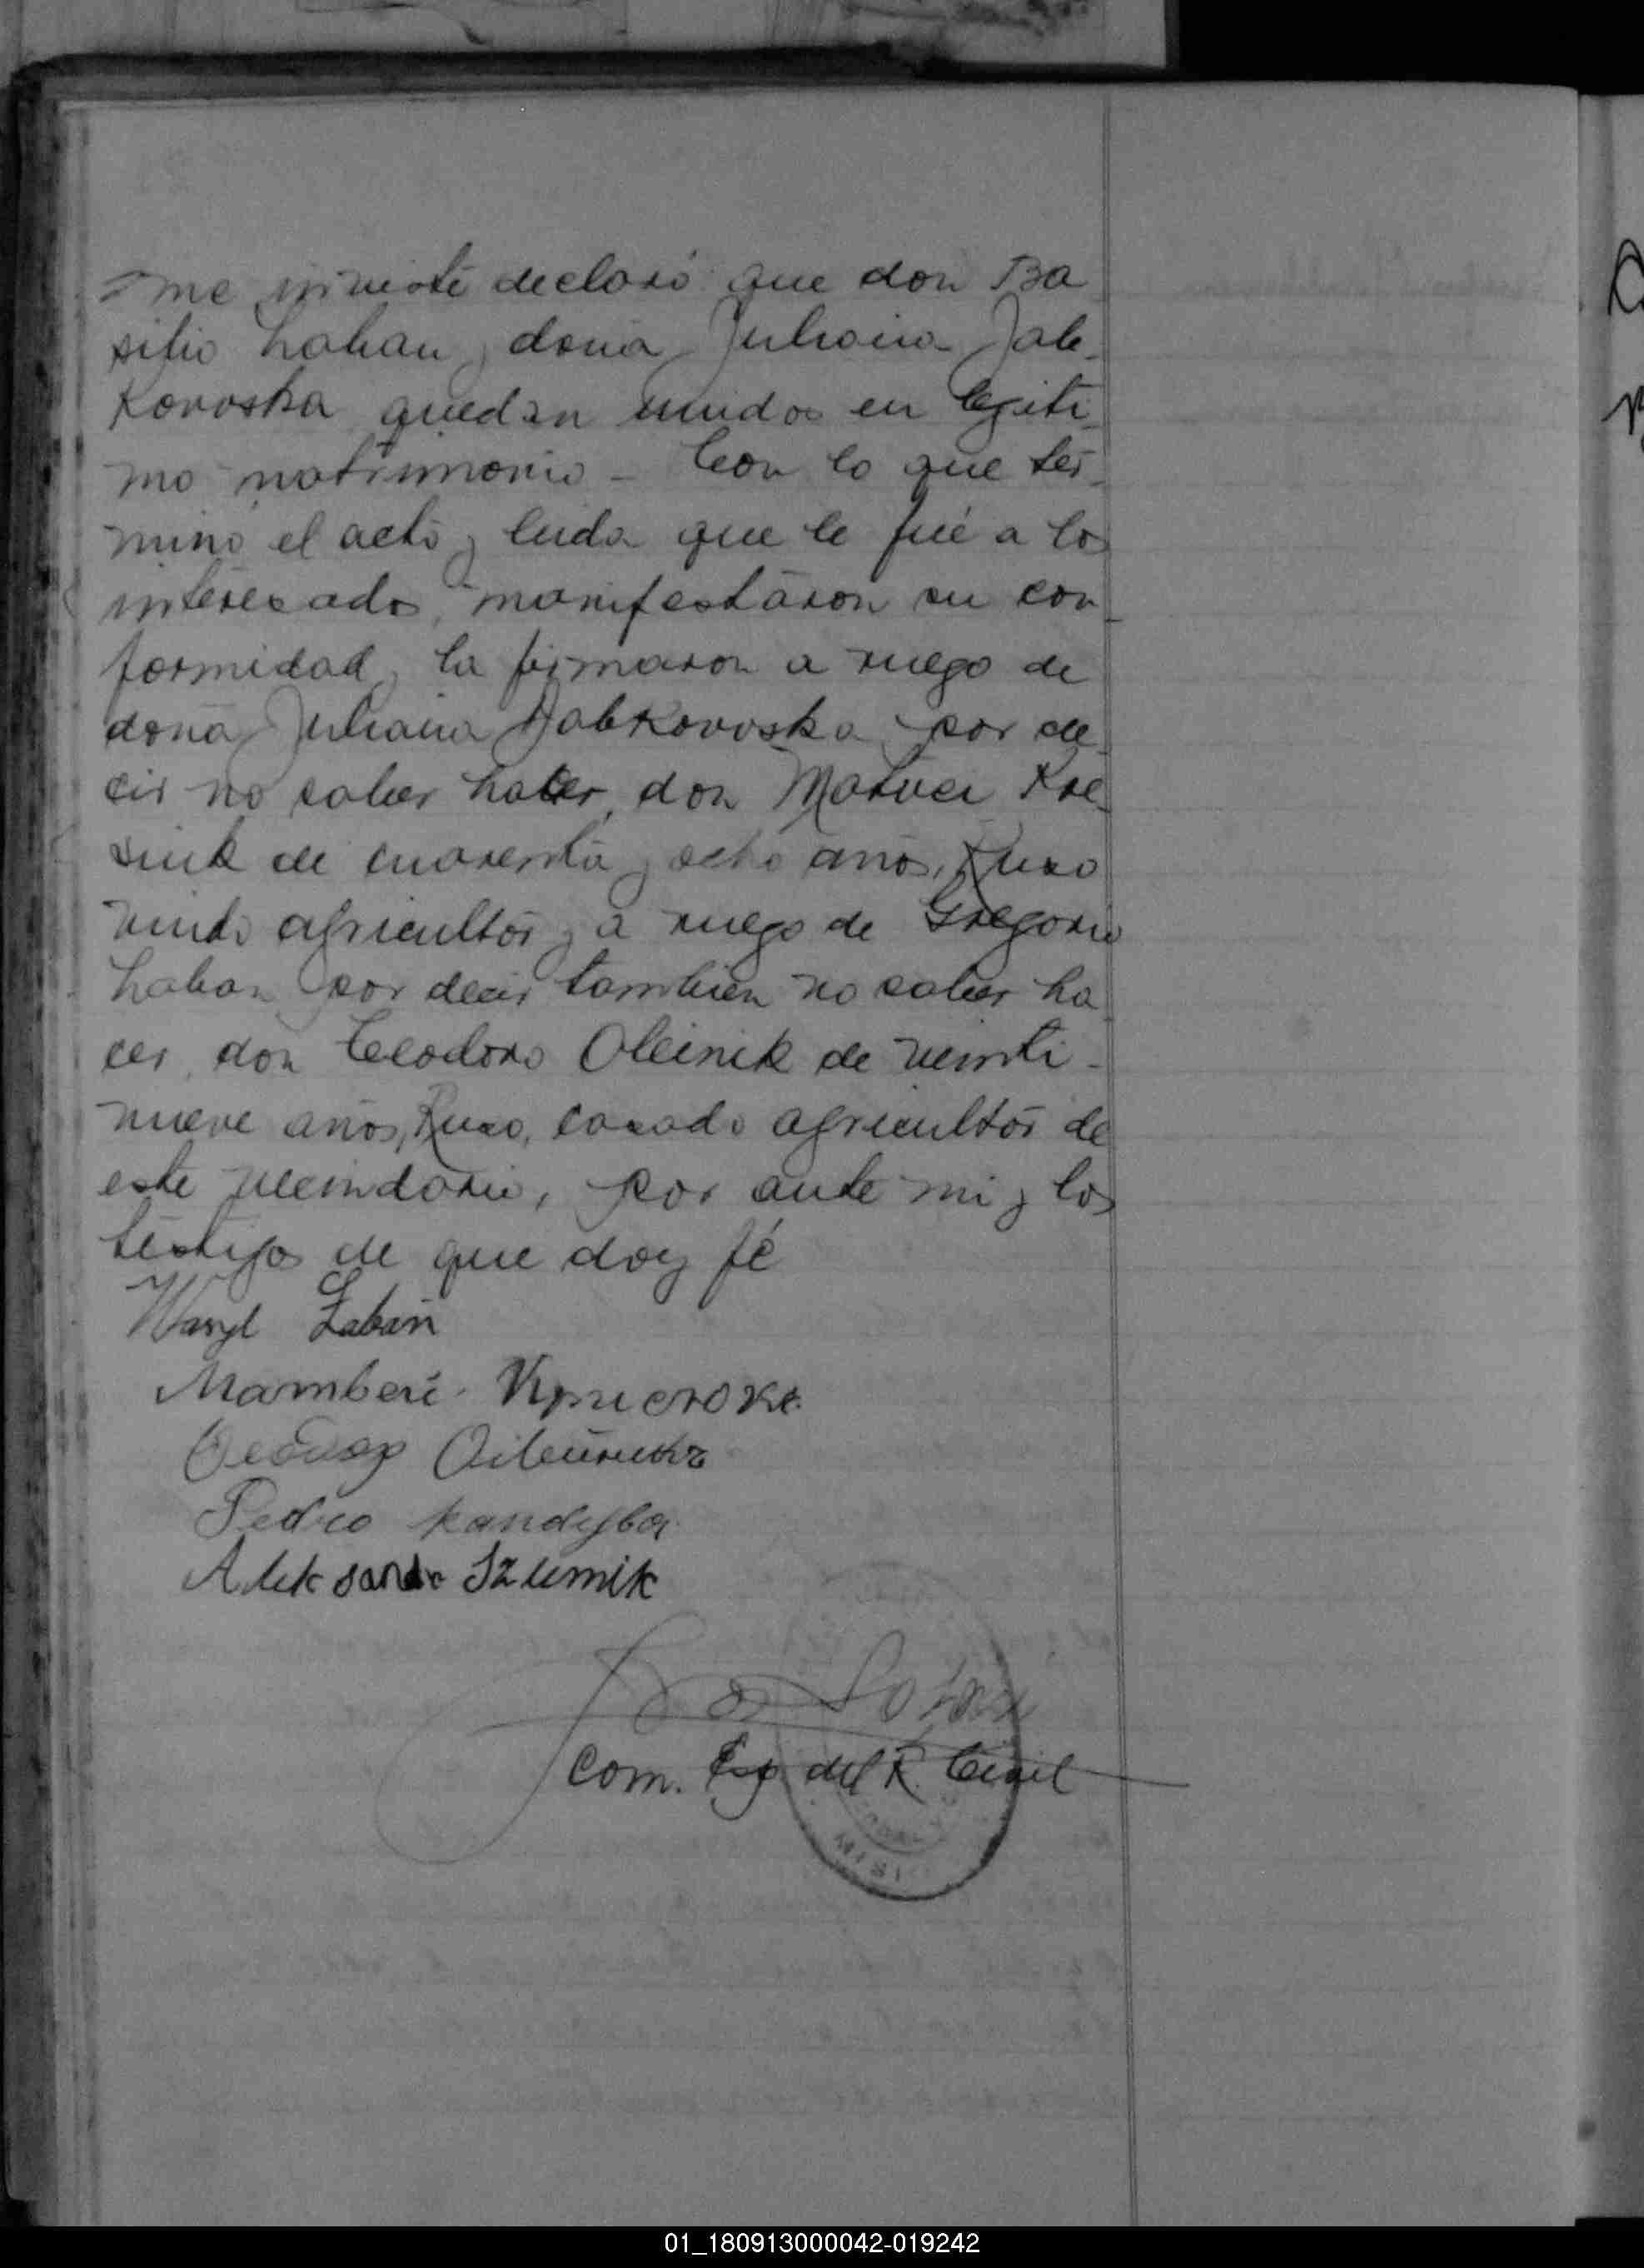 me inviste declaró que don Ba
silio Laban y doña Juliana Jab-
Kovoska quedan unidos en legiti
mo matrimonio - Con lo que ter-
minó el acto y leida que le fué a los
interesados, manifestáron su con-
formidad y la firmaron a ruego de
doña Juliana Jabkovoska por de-
cir no saber hacer don
de cuarenta y ocho años, Ruso
viudo agricultor y a ruego de Gregorio
Laban por decir tambien no saber ha
cer, don Teodoro Oleinik de veinti-
nueve años, Ruso, casado agricultor de
este vecindario, por ante mi y los
testigos de que doy fé
Wasyl Łaban
Pedro Kandyba
Aleksandr
Com. del R. Civil